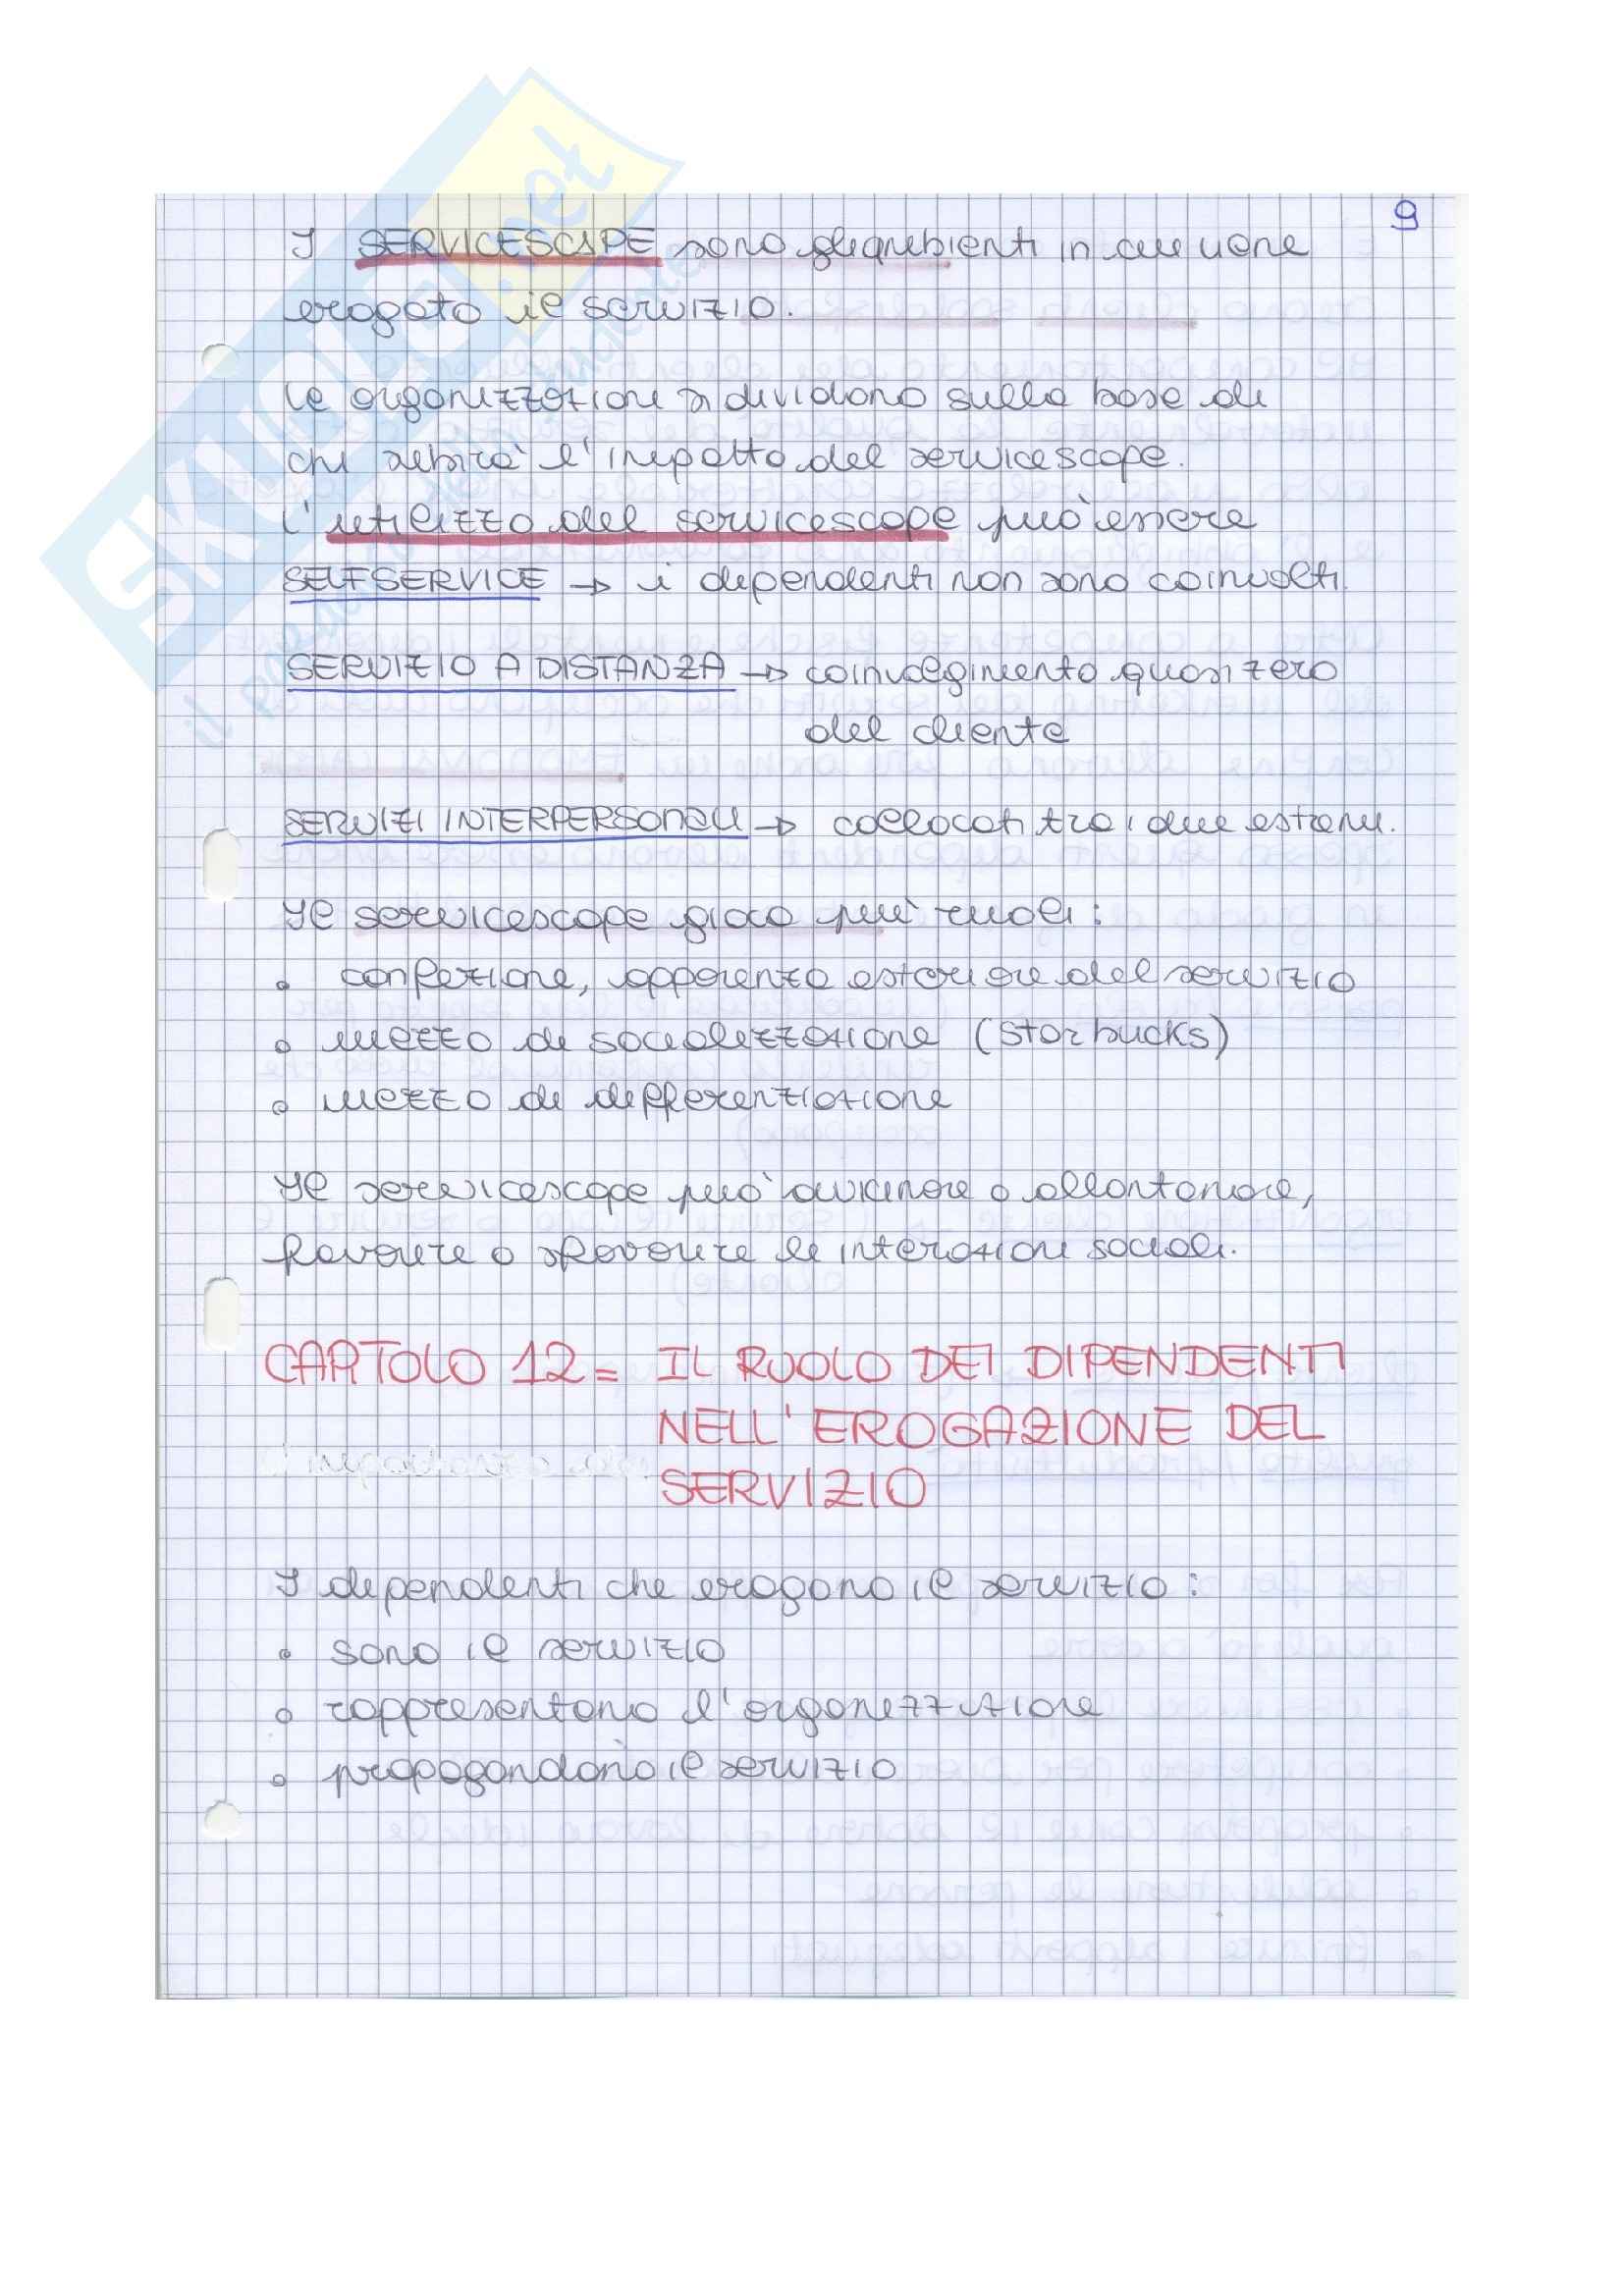 9
I SERVICESCAPE sono gli ambienti in cui viene
erogato il servizio.
Le organizzazioni si dividono sulla base di
chi subirà l'impatto del servicescape.
L'utilizzo del servicescape può essere
SELF SERVICE → i dipendenti non sono coinvolti.
SERVIZIO A DISTANZA → coinvolgimento quasi zero
del cliente
SERVIZI INTERPERSONALI → collocati tra i due estremi.
Il servicescape gioca più ruoli:
• confezione, apparenza esteriore del servizio
• mezzo di socializzazione (Starbucks)
• mezzo di differenziazione
Il servicescape può avvicinare o allontanare,
favorire o sfavorire le interazioni sociali.
CAPITOLO 12 = IL RUOLO DEI DIPENDENTI
NELL'EROGAZIONE DEL
SERVIZIO
I dipendenti che erogano il servizio:
• sono il servizio
• rappresentano l'organizzazione
• propagandano il servizio
SKUOLA.net